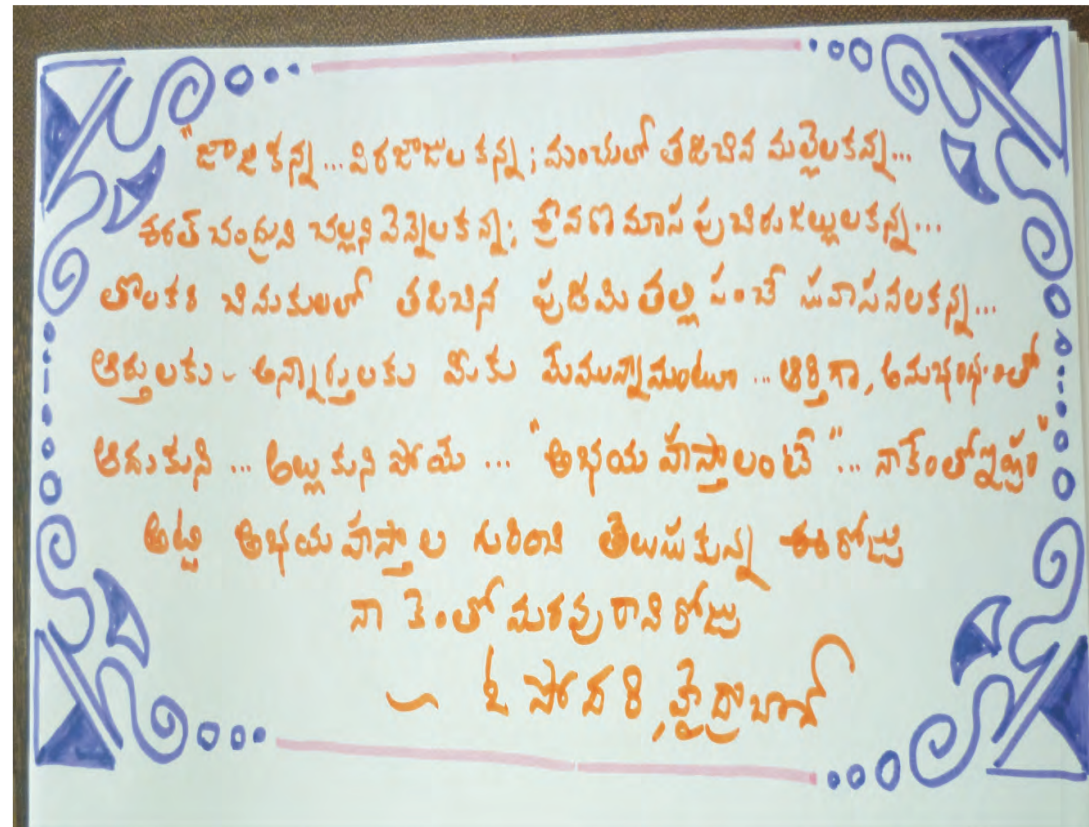 "జాజికన్న... విరజాజుల కన్న; మంచులో తడిచిన మల్లెలకన్న...
శరత్ చంద్రుని చల్లని వెన్నెలకన్న; శ్రావణ మాసపు చిరుజల్లులకన్న...
తొలకరి చినుకులలో తడిచిన పుడమి తల్లి పంచే సువాసనలకన్న...
ఆర్తులకు - అన్నార్తులకు మీకు మేమున్నామంటూ... ఆర్తిగా, అనుభంధంలో
ఆదుకుని ... అల్లుకుని పోయె ... "అభయ హస్తాలంటే"... నాకెంతోఇష్టం"
అట్టి అభయ హస్తాల గురించి తెలుసుకున్న ఈరోజు
నా కెంతో మరపురాని రోజు
~ ఓ సోదరి, హైద్రాబాద్